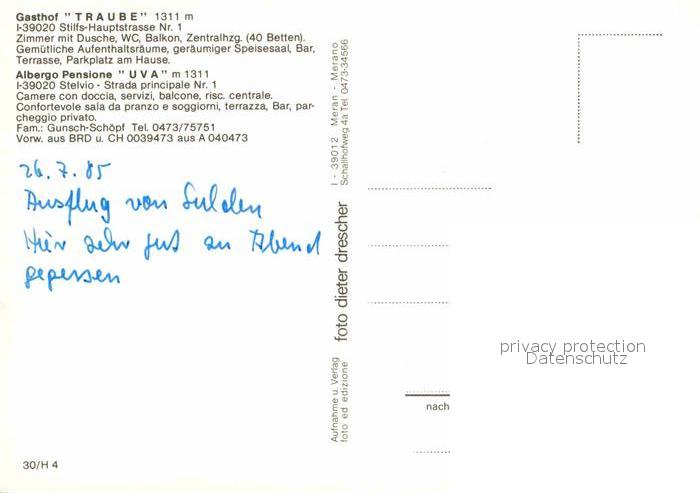 Gasthof "TRAUBE" 1311 m
I-39020 Stilfs-Hauptstrasse Nr. 1
Zimmer mit Dusche, WC, Balkon, Zentralhzg. (40 Betten).
Gemütliche Aufenthaltsräume, geräumiger Speisesaal, Bar,
Terrasse, Parkplatz am Hause.
Albergo Pensione "UVA" m 1311
I-39020 Stelvio - Strada principale Nr. 1
Camere con doccia, servizi, balcone, risc. centrale.
Confortevole sala da pranzo e soggiorni, terrazza, Bar, par-
cheggio privato.
Fam.: Gunsch-Schöpf Tel. 0473/75751
Vorw. aus BRD u. CH 0039473 aus A 040473
26.7.85
Ausflug von Sulden
Hier sehr gut zu Abend
gegessen
30/H 4
Aufnahme u. Verlag
foto ed edizione
foto dieter drescher
I - 39012 Meran - Merano
Schallhofweg 4a Tel. 0473-34566
privacy protection
Datenschutz
nach